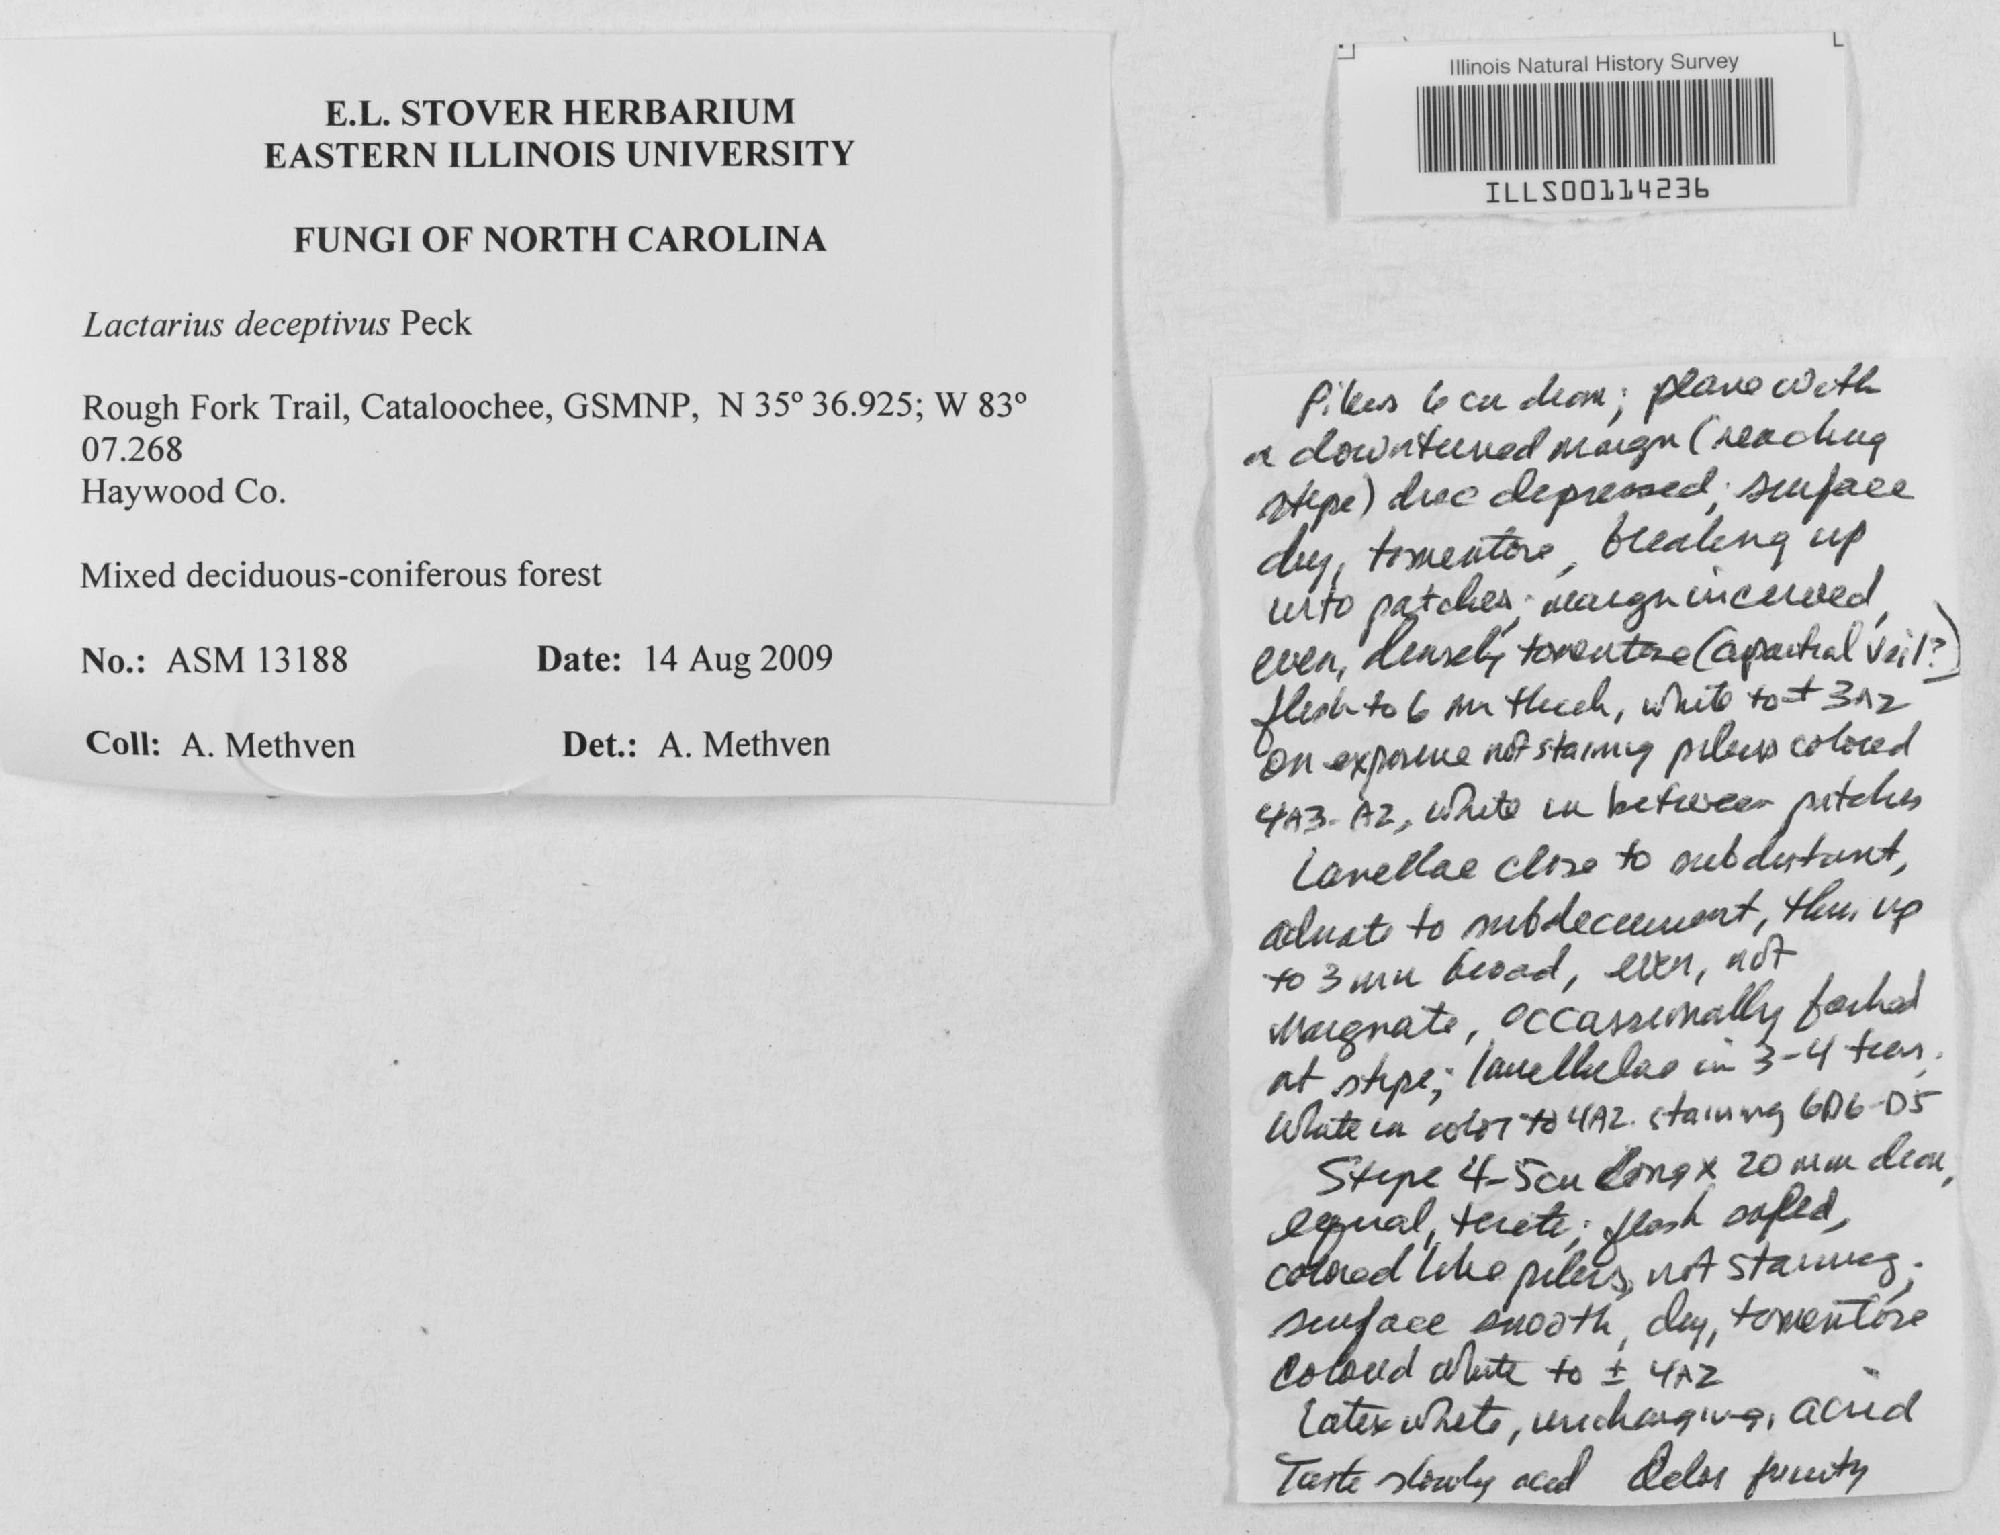 E.L. STOVER HERBARIUM
EASTERN ILLINOIS UNIVERSITY
FUNGI OF NORTH CAROLINA
Lactarius deceptivus Peck
Rough Fork Trail, Cataloochee, GSMNP, N 35° 36.925; W 83°
07.268
Haywood Co.
Mixed deciduous-coniferous forest
No.: ASM 13188 Date: 14 Aug 2009
Coll: A. Methven Det.: A. Methven
Illinois Natural History Survey
ILLS00114236
Pileus 6 cm diam; plane with
a downturned margin (reaching
stipe) disc depressed; surface
dry, tomentose, breaking up
into patches; margin incurved,
even, densely tomentose (a partial veil?)
flesh to 6 mm thick, white to ± 3A2
on exposure not staining pileus colored
4A3-A2, white in between patches
Lamellae close to subdistant,
adnate to subdecurrent, thin, up
to 3 mm broad, even, not
marginate, occassionally forked
at stipe; lamellulae in 3-4 tiers,
white in color to 4A2. staining 6D6-D5
Stipe 4-5 cm long x 20 mm diam,
equal, terete; flesh
colored like pileus, not staining;
surface smooth, dry, tomentose
colored white to ± 4A2
Latex white, unchanging, acrid
Taste slowly acrid Odor fruity